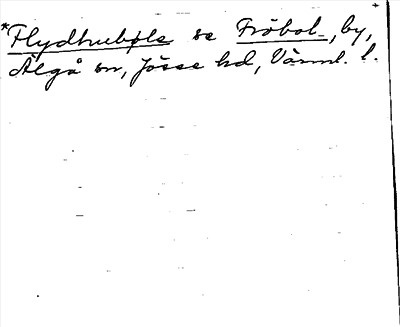 *Flydhubøle se Fröbol, by,
Älgå sn, Jösse hd, Värml. l.